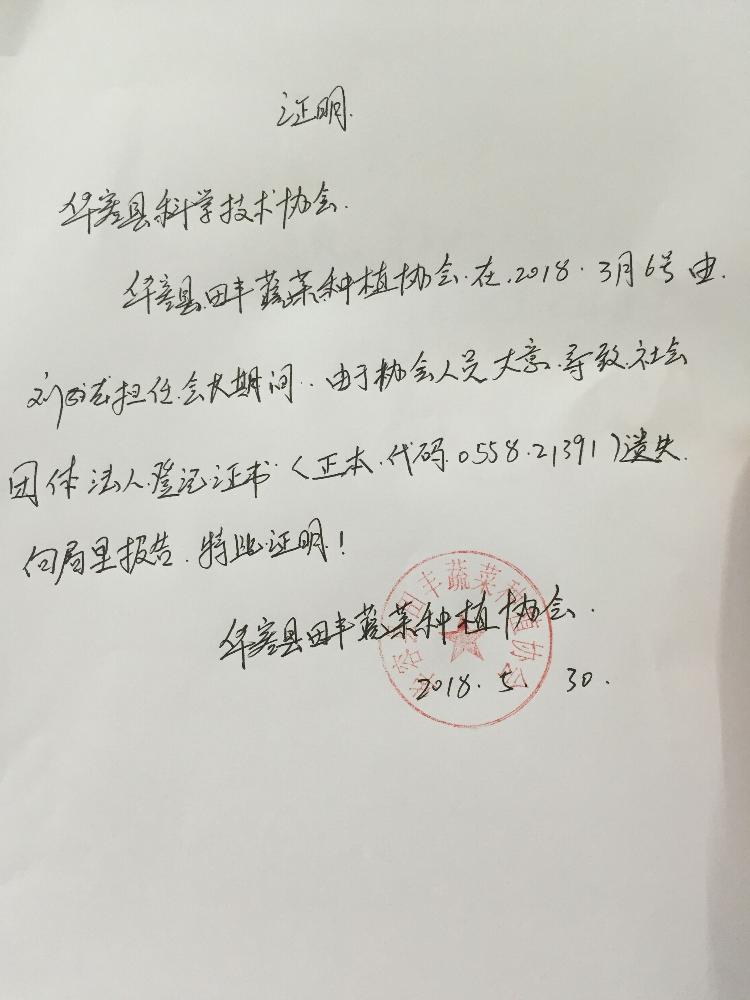 证明.
华容县科学技术协会.
华容县田丰蔬菜种植协会.在.2018.3月6号由.
刘 担任会长期间..由于协会人员大意.导致.社会
团体法人.登记证书.(正本.代码.0558.21391)遗失.
向局里报告.特此证明!
华容县田丰蔬菜种植协会.
2018.5.30.
华容县田丰蔬菜种植协会